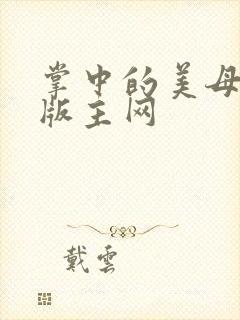 掌中的美母
版主网
戴雲